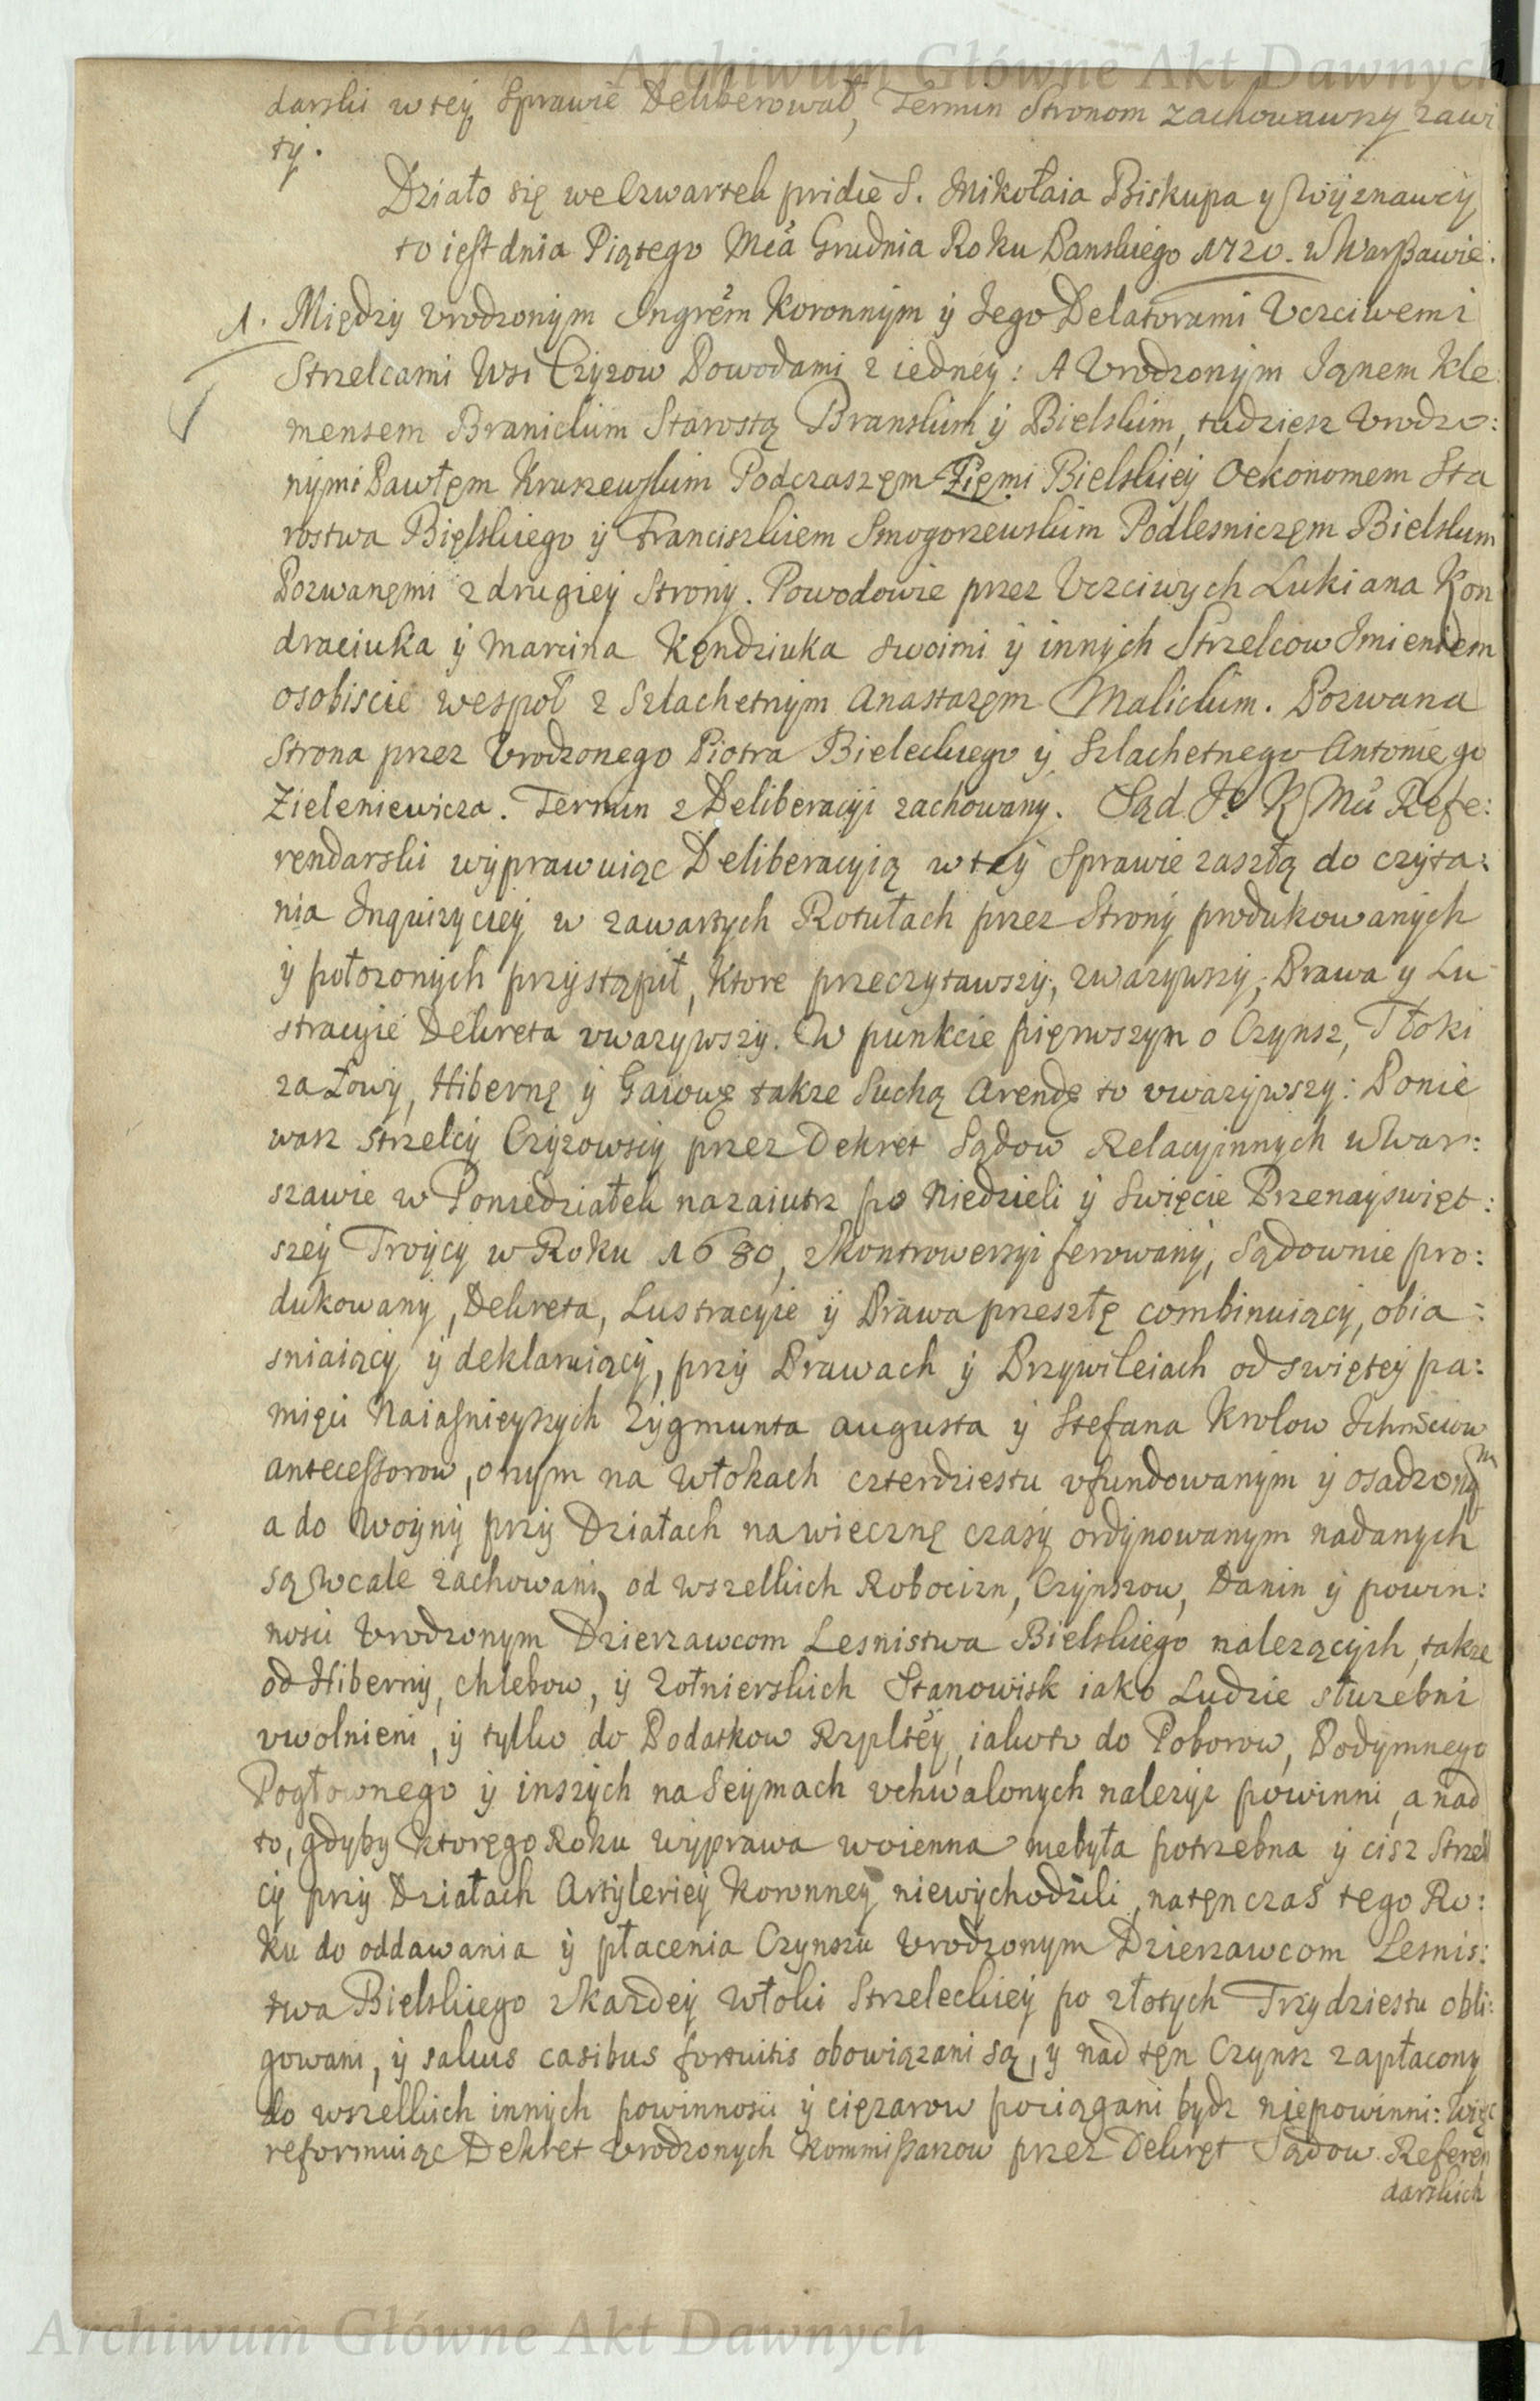 Archiwum Główne Akt Dawnych
darski w tey Sprawie Deliberował, Termin Stronom zachowawszy zawi
ty.
Działo się we Czwartek pridie S. Mikołaia Biskupa y Wyznawcy
to iest dnia Piątego Mca Grudnia Roku Panskiego 1720. w Warszawie.
1. Między Vrodzonym Ingrem Koronnym ÿ Jego Delatorami Vczciwemi
Strzelcami Wsi Czyzow Powodami z iedney: A Vrodzonym Janem Kle:
mensem Branickim Starostą Branskim ÿ Bielskim, tudziesz Vrodzo:
nymi Pawłem Kruszewskim Podczaszem Ziemi Bielskiey Oekonomem Sta
rostwa Bielskiego ÿ Franciszkiem Smogorzewskim Podlesniczem Bielskim
Pozwanemi z drugiey Strony. Powodowie przez Vczciwych Lukiana Kon
draciuka ÿ Marcina Kendziuka swoimi ÿ innych Strzelcow Imieniem
osobiscie wespoł z Szlachetnym Anastazem Malickim. Pozwana
Strona przez Vrodzonego Piotra Bieleckiego ÿ Szlachetnego Antoniego
Zieleniewicza. Termin z Deliberacyi zachowany. Sąd Jo K Mci Refe:
rendarski wyprawuiąc Deliberacyią w tey Sprawie zaszłą do czyta:
nia Inquizyciey w zawartych Rotułach przez Strony produkowanych
ÿ połozonych przystąpił, Ktore przeczytawszy, zwazywszy, Prawa y Lu
stracyie Dekreta vwazywszy. W punkcie pierwszym o Czynsz, Tłoki
za Łowy, Hibernę ÿ Gaiowe takze Suchą Arendę to vwazywszy: Ponie
wasz Strzelcy Czyzowscy przez Dekret Sądow Relacyinnych w War:
szawie w Poniedziałek nazaiutrz po Niedzieli ÿ Swięcie Przenayswięt:
szey Troycy w Roku 1680, z Kontrowersyi ferowany, Sądownie pro:
dukowany, Dekreta, Lustracyie ÿ Prawa przeszłe combinuiący, obia:
sniaiący ÿ deklaruiący, przy Prawach ÿ Przywileiach od swiętey pa:
mięci Naiasnieyszych Zygmunta Augusta ÿ Stefana Krolow Ichmsciow
antecessorow, onym na Włokach czterdziestu vfundowanym ÿ osadzonym
a do Woyny przy Działach na wieczne czasy ordynowanym nadanych
są w cale zachowani, od wszelkich Robocizn, Czynszow, Danin ÿ powin:
nosci Vrodzonym Dzierzawcom Lesnistwa Bielskiego nalezących, takze
od Hiberny, chlebow, ÿ Zołnierskich Stanowisk iako Ludzie słuzebni
vwolnieni, ÿ tylko do Podatkow Rzpltey, iakoto do Poborow, Podymnego
Pogłownego ÿ inszych na Seymach vchwalonych nalezyc powinni, a nad
to, gdyby Ktorego Roku wyprawa woienna niebyła potrzebna ÿ cisz Strzel
cy przy Działach Artyleriey Koronney niewychodzili, natenczas tego Ro:
ku do oddawania ÿ płacenia Czynszu Vrodzonym Dzierzawcom Lesnis:
twa Bielskiego z Kazdey Włoki Strzeleckiey po złotych Trzydziestu obli:
gowani, ÿ salvis casibus fortuitis obowiązani są, y nad ten Czynsz zapłacony
do wszelkich innych powinnosci ÿ cięzarow pociągani bydz niepowinni: Więc
reformuiąc Dekret Vrodzonych Kommissarzow przez Dekret Sądow Referen
darskich
Archiwum Główne Akt Dawnych